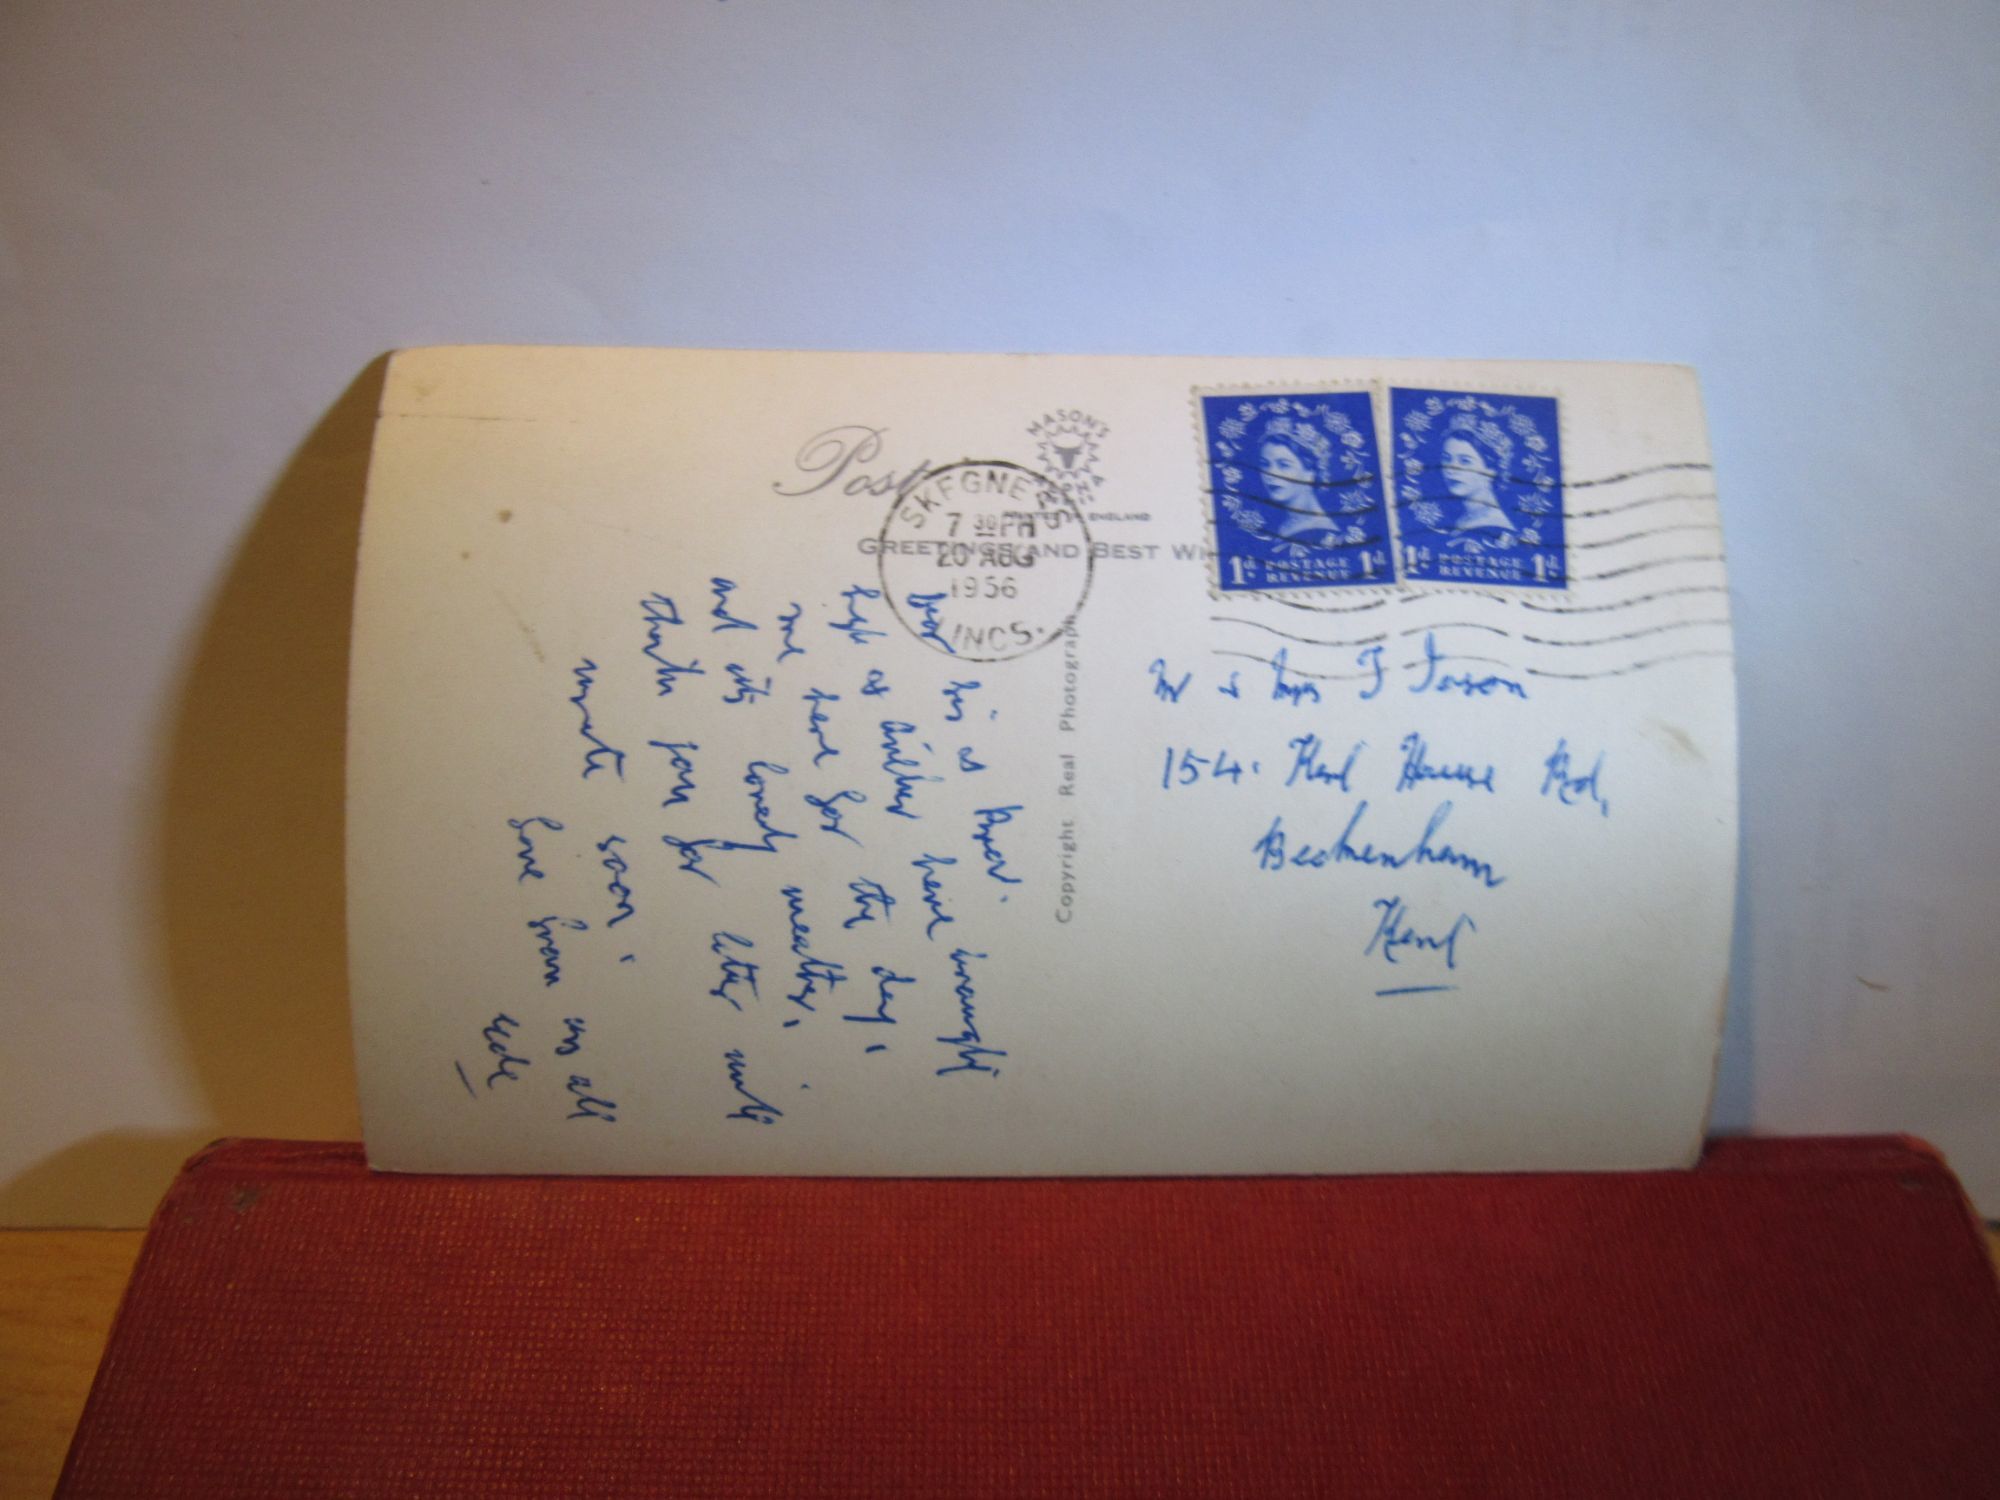 Post
MASON'S
ALPHA
PRINTED IN ENGLAND
SKEGNESS
7 30 PM
20 AUG
1956
LINCS.
GREETINGS AND BEST WI
1d. POSTAGE REVENUE 1d.
1d. POSTAGE REVENUE 1d.
Copyright Real Photograph
Dear
have brought
me here for the day,
and its lovely weather,
thank you for letter will
write soon,
love from us all
Ede
Mr & Mrs F
154. Kent House Rd,
Beckenham
Kent